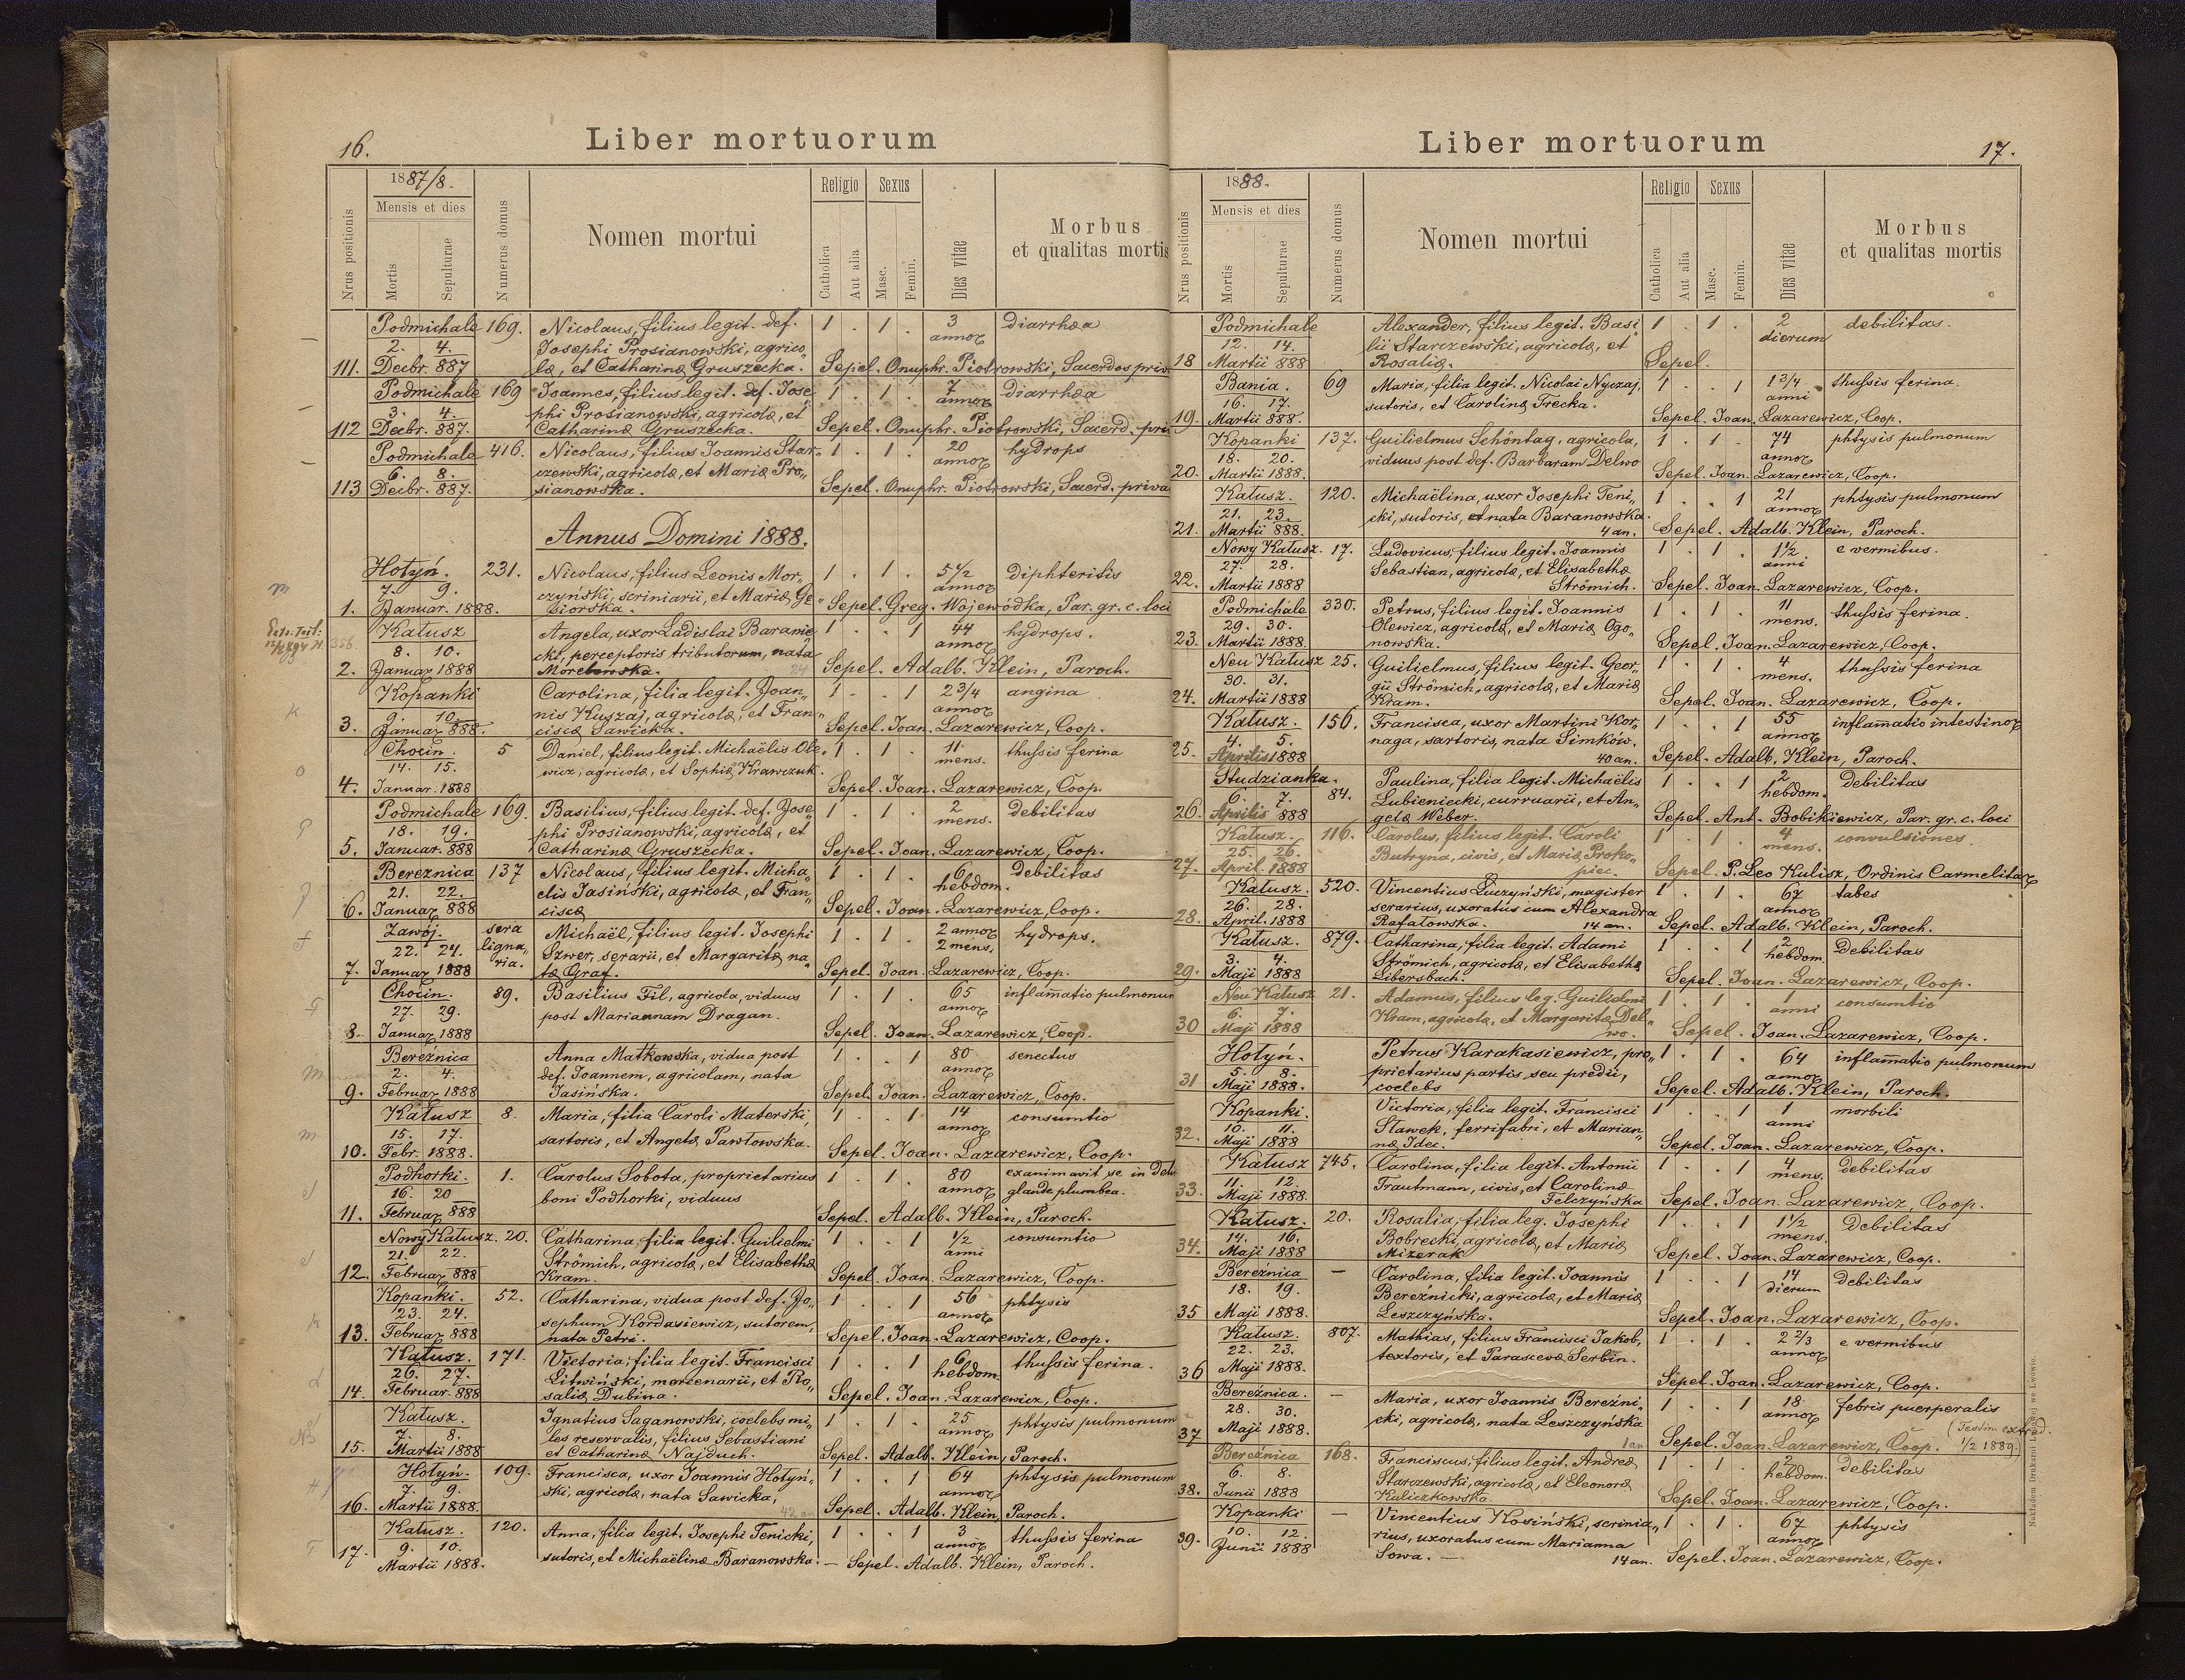 16.
Liber mortuorum
1887/8.
Religio Sexus
Mensis et dies
Nrus positionis
Mortis
Sepulturae
Numerus domus
Nomen mortui
Catholica
Aut alia
Masc.
Femin.
Dies vitae
Morbus
et qualitas mortis
Podmichale 169. Nicolaus, filius legit. def. 1 . 1 . 3 diarrhæa
2. 4. Josephi Prosianowski, agrico„ annor
111. Decbr. 887 læ, et Catharinæ Gruszecka. Sepel. Onuphr. Piotrowski, Sacerdos priv
Podmichale 169 Joannes, filius legit. def. Jose„ 1 . 1 . 7 diarrhæa
3. 4. phi Prosianowski, agricolæ, et annor
112 Decbr. 887. Catharinæ Gruszecka. Sepel. Onuphr. Piotrowski, Sacerd. pri
Podmichale 416. Nicolaus, filius Joannis Star„ 1 . 1 . 20 hydrops
6. 8. czewski, agricolæ, et Mariæ Pro„ annor
113 Decbr. 887. sianowska. Sepel. Onuphr. Piotrowski, Sacerd. priva
Annus Domini 1888.
m Hołyń. 231. Nicolaus, filius Leonis Mor„ 1 . 1 . 5 1/2 diphteritis
7. 9. czyński, scriniarii, et Mariæ Ge„ annor
1. Januar. 1888. ciorska. Sepel. Greg. Wojewodka, Par. gr. c. loci
Kałusz 356. Angela, uxor Ladislai Baranie„ 1 . . 1 44 hydrops.
8. 10. cki, perceptoris tributorum, nata annor
2. Januar 1888 24 Sepel. Adalb. Klein, Paroch.
k Kopanki Carolina, filia legit. Joan„ 1 . . 1 2 3/4 angina
9. 10. nis Kuszaj, agricolæ, et Fran„ annor
3. Januar 888. ciscæ Sawicka. Sepel. Joan. Lazarewicz, Coop.
o Chocin. 5 Daniel, filius legit. Michaëlis Ole„ 1 . 1 . 11 thussis ferina
14. 15. wicz, agricolæ, et Sophiæ Krawczuk. mens.
4. Januar. 1888 Sepel. Joan. Lazarewicz, Coop.
Podmichale 169. Basilius, filius legit. def. Jose„ 1 . 1 . 2 Debilitas
18. 19. phi Prosianowski, agricolæ, et mens.
5. Januar. 888 Catharinæ Gruszecka. Sepel. Joan. Lazarewicz, Coop.
Bereznica 137 Nicolaus, filius legit. Micha„ 1 . 1 . 6 Debilitas
21. 22. elis Jasiński, agricolæ, et Fran„ hebdom.
6. Januar 888 ciscæ Sepel. Joan. Lazarewicz, Coop.
Zawój. sera Michaël, filius legit. Josephi 1 . 1 . 2 annor hydrops.
22. 24. ligna„ Szwer, serarii, et Margaritæ na„ 2 mens.
7. Januar 1888 ria. tæ Graf. Sepel. Joan. Lazarewicz, Coop.
Chocin. 89. Basilius Fil, agricola, viduus 1 . 1 . 65 inflam̄atio pulmonum
27. 29. post Mariannam Dragan. annor
8. Januar 1888 Sepel. Joan. Lazarewicz, Coop.
m Bereźnica Anna Matkowska, vidua post 1 . . 1 80 senectus
2. 4. def. Joannem, agricolam, nata annor
9. Februar 1888 Jasińska. Sepel. Joan. Lazarewicz, Coop.
m Kałusz 8. Maria, filia Caroli Materski, 1 . . 1 14 consumtio
15. 17. sartoris, et Angelæ Pawłowska. annor
10. Febr. 1888. Sepel. Joan. Lazarewicz, Coop.
Podhorki. 1. Carolus Sobota, proprietarius 1 . 1 . 80 exanimavit se in
16. 20 boni Podhorki, viduus annor glande plumbea.
11. Februar 888 Sepel. Adalb. Klein, Paroch.
Nowy Kałusz. 20. Catharina, filia legit. Guilielmi 1 . . 1 1/2 consumtio
21. 22. Strömich, agricolæ, et Elisabethæ anni
12. Februar 888 Kram. Sepel. Joan. Lazarewicz, Coop.
k Kopanki. 52. Catharina, vidua post def. Jo„ 1 . . 1 56 phtysis
23. 24. sephum Kordasiewicz, sutorem, annor
13. Februar 888 nata Petri. Sepel. Joan. Lazarewicz, Coop.
Kałusz. 171. Victoria, filia legit. Francisci 1 . . 1 6 thussis ferina.
26. 27. Litwiński, mercenarii, et Ro„ hebdom.
14. Februar. 888 saliæ Dubina. Sepel. Joan. Lazarewicz, Coop.
Kałusz. Ignatius Saganowski, coelebs mi„ 1 . 1 . 25 phtysis pulmonum
7. 8. les reservalis, filius Sebastiani annor
15. Martii 1888 et Catharinæ Najduch. Sepel. Adalb. Klein, Paroch.
Hołyń. 109. Francisca, uxor Joannis Hołyń„ 1 . . 1 64 phtysis pulmonum
7. 9. ski, agricolæ, nata Sawicka, annor
16. Martii 1888. Sepel. Adalb. Klein, Paroch.
Kałusz. 120. Anna, filia legit. Josephi Tenicki, 1 . . 1 3 thussis ferina
9. 10. sutoris, et Michaëlinæ Baranowska. annor
17. Martii 1888. — Sepel. Adalb. Klein, Paroch.
Liber mortuorum
17.
1888.
Religio Sexus
Mensis et dies
Nrus positionis
Mortis
Sepulturae
Numerus domus
Nomen mortui
Catholica
Aut alia
Masc.
Femin.
Dies vitae
Morbus
et qualitas mortis
Podmichale Alexander, filius legit. Basi„ 1 . 1 . 2 debilitas.
12. 14. lii Starczewski, agricolæ, et dierum
18 Martii 888 Rosaliæ. Sepel.
Bania. 69 Maria, filia legit. Nicolai Nyczaj, 1 . . 1 1 3/4 thussis ferina.
16. 17. sutoris, et Carolinæ Trecka. anni
19. Martii 888. Sepel. Joan. Lazarewicz, Coop.
Kopanki 137. Guilielmus Schöntag, agricola, 1 . 1 . 74 phtysis pulmonum
18. 20. viduus post def. Barbaram Delwo annor
20. Martii 1888. Sepel. Joan. Lazarewicz, Coop.
Kałusz. 120. Michaëlina, uxor Josephi Teni„ 1 . . 1 21 phtysis pulmonum
21. 23. cki, sutoris, et nata Baranowska. annor
21. Martii 888. 4 an. Sepel. Adalb. Klein, Paroch.
Nowy Kałusz. 17. Ludovicus, filius legit. Joannis 1 . 1 . 1 1/2 e vermibus.
27. 28. Sebastian, agricolæ, et Elisabethæ anni
22. Martii 1888 Strömich. Sepel. Joan. Lazarewicz, Coop.
Podmichale 330. Petrus, filius legit. Joannis 1 . 1 . 11 thussis ferina.
29. 30. Olewicz, agricolæ, et Mariæ Ogo„ mens.
23. Martii 1888. nowska. Sepel. Joan. Lazarewicz, Coop.
Neu Kałusz 25. Guilielmus, filius legit. Geor„ 1 . 1 . 4 thussis ferina
30. 31. gii Strömich, agricolæ, et Mariæ mens.
24. Martii 1888 Kram. Sepel. Joan. Lazarewicz, Coop.
Kałusz. 156. Francisca, uxor Martini Kor„ 1 . . 1 55 inflam̄atio intestinor
4. 5. naga, sartoris, nata Simków. annor
25. Aprilis 1888 40 an. Sepel. Adalb. Klein, Paroch.
Studzianka. Paulina, filia legit. Michaëlis 1 . . 1 2 debilitas
6. 7. 84. Lubieniecki, curruarii, et An„ hebdom.
26. Aprilis 888 gelæ Weber. Sepel. Ant. Bobikiewicz, Par. gr. c. loci
Kałusz. 116. Carolus, filius legit. Caroli 1 . 1 . 4 convulsiones
25. 26. Butryna, civis, et Mariæ Proko„ mens.
27. April. 1888 piec. Sepel. P. Leo Kulisz, Ordinis Carmelitar
Kałusz. 520. Vincentius Łuczyński, magister 1 . 1 . 67 tabes
26. 28. serarius, uxoratus cum Alexandra annor
28. April. 1888 Rafałowska. 14 an. Sepel. Adalb. Klein, Paroch.
Kałusz. 879. Catharina, filia legit. Adami 1 . . 1 2 Debilitas
3. 4. Strömich, agricolæ, et Elisabethæ hebdom.
29. Maji 1888 Libersbach. Sepel. Joan. Lazarewicz, Coop.
Neu Kałusz 21. Adamus, filius leg. Guilielmi 1 . 1 . 1 consumtio
6. 7. Kram, agricolæ, et Margaritæ Del„ anni
30 Maji 1888 wo. Sepel. Joan. Lazarewicz, Coop.
Hołyń. Petrus Karakasiewicz, pro„ 1 . 1 . 64 inflam̄atio pulmonum
5. 8. prietarius partis seu predii, annor
31 Maji 1888. coelebs Sepel. Adalb. Klein, Paroch.
Kopanki. Victoria, filia legit. Francisci 1 . . 1 1 morbili
10. 11. Sławek, ferrifabri, et Marian„ anni
32. Maji 1888 næ Idec. Sepel. Joan. Lazarewicz, Coop.
Kałusz 745. Carolina, filia legit. Antonii 1 . . 1 4 debilitas
11. 12. Trautmann, civis, et Carolinæ mens.
33. Maji 1888. Felczyńska Sepel. Joan. Lazarewicz, Coop.
Kałusz. 20. Rosalia, filia leg. Josephi 1 . . 1 1 1/2 Debilitas
14. 16. Bobrecki, agricolæ, et Mariæ mens.
34. Maji 1888 Mizerak Sepel. Joan. Lazarewicz, Coop.
Bereźnica — Carolina, filia legit. Joannis 1 . . 1 14 Debilitas
18. 19. Bereźnicki, agricolæ, et Mariæ dierum
35 Maji 1888. Leszczyńska. Sepel. Joan. Lazarewicz, Coop.
Kałusz. 807. Mathias, filius Francisci Jakob, 1 . 1 . 2 2/3 e vermibus
22. 23. textoris, et Parascevæ Serbin. annor
36 Maji 1888. Sepel. Joan. Lazarewicz, Coop.
Bereźnica. — Maria, uxor Joannis Bereźni„ 1 . . 1 18 febris puerperalis
28. 30. cki, agricolæ, nata Leszczyńska annor
37 Maji 1888. 1 an Sepel. Joan. Lazarewicz, Coop. (Testim. extrad. 1/2 1889.)
Bereźnica 168. Franciscus, filius legit. Andreæ 1 . 1 . 2 debilitas
6. 8. Starczewski, agricolæ, et Eleonoræ hebdom.
38. Junii 1888 Kuliczkowska. Sepel. Joan. Lazarewicz, Coop.
Kopanki — Vincentius Kosiński, scrinia„ 1 . 1 . 67 phtysis
10. 12. rius, uxoratus cum Marianna annor
39. Junii 1888 Sowa. — 14 an. Sepel. Joan. Lazarewicz, Coop.